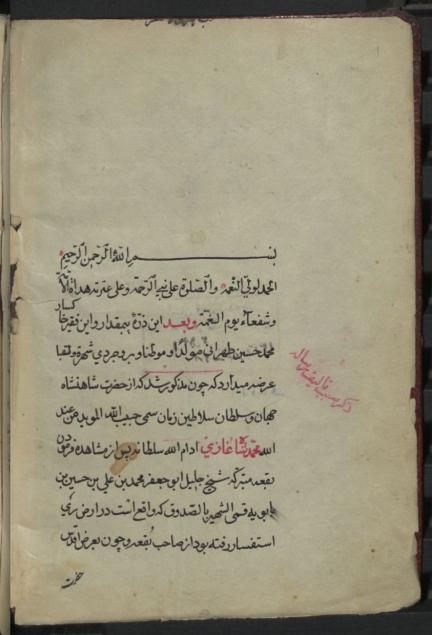 بسم الله الرحمن الرحیم
الحمد لولی النعمة والصلوة علی نبی الرحمة وعلی عترته هداة الامة
وشفعاء یوم الغمة وبعد این ذره بیمقدار و این فقیر خاکسار
محمد حسین طهرانی مولدا و موطنا و بروجردی شهرة و لقبا
عرضه میدارد که چون مذکور شد که از حضرت شاهنشاه
جهان و سلطان سلاطین زمان سمی حبیب الله الموید من عند
الله محمد شاه غازی ادام الله سلطانه پس از مشاهده فرمودن
بقعه متبرکه شیخ جلیل ابو جعفر محمد بن علی بن حسین بن
بابویه قمی الشهیر بالصدوق که واقع است در ارض ری
استفسار رفته بود از صاحب بقعه و چون بعرض اقدس
حضرت
ذکر سبب تالیف رساله